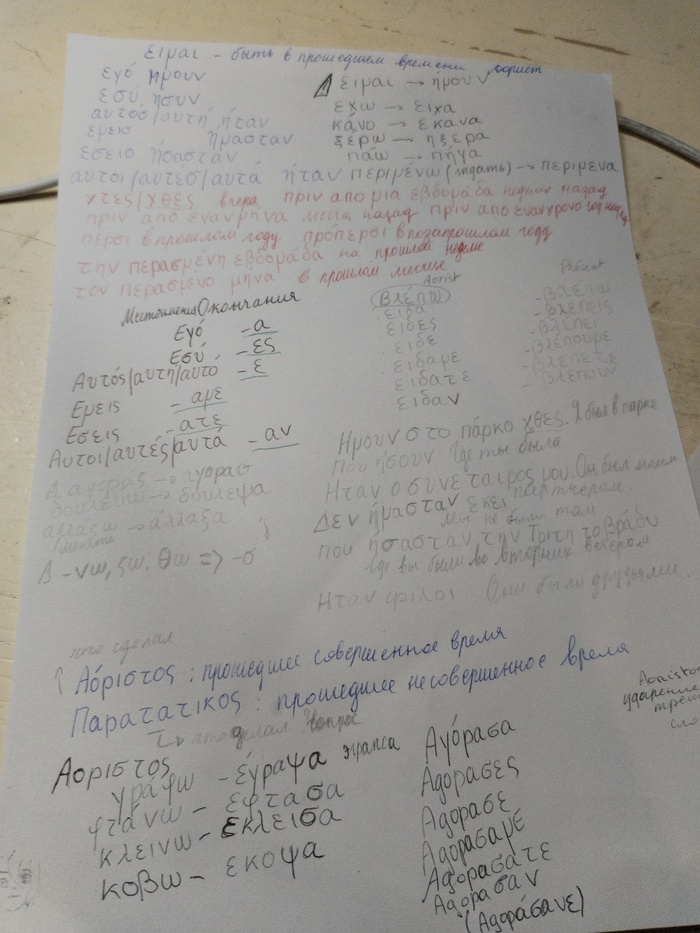 ειμαι - быть в прошедшем времени аорист
εγό ήμουν
εσύ ήσυν
αυτοσ/αυτή ήταν
εμεισ ήμασταν
εσεισ ήσασταν
αυτοι/αυτεσ/αυτά ήταν
Δ ειμαι → ήμουν
εχω → ειχα
κάνο → εκανα
ξερω → ηξερα
πάω → πήγα
περιμένω (ждать) → περιμενα
χτες/χθες вчера πριν απο μια εβδομάδα неделю назад
πριν απο εναν μηνα месяц назад πριν απο εναν χρονο год назад
περσι в прошлом году πρόπερσι в позапрошлом году
την περασμένη εβδομάδα на прошлой неделе
τον περασμενο μήνα в прошлом месяце
Местоимения Окончания
Εγό -α
Εσύ -ες
Αυτός/αυτη/αυτο -ε
Εμεις -αμε
Εσεις -ατε
Αυτοι/αυτές/αυτά -αν
Aorist
βλέπω
ειδα
ειδες
ειδε
ειδαμε
ειδατε
ειδαν
- βλεπω
- βλεπεις
- βλεπει
- βλεπουμε
- βλεπετε
- βλεπουν
δουλευω → δουλεψα
αλλαζω → αλλαξα
(менять)
-νω, ζω, θω => -σ
Ημουν στο πάρκο χθες. Я был в парке
που ήσουν Где ты была
Ηταν ο συνεταιρος μου. Он был моим
партнером
Δεν ήμασταν εκει
Мы не были там
που ησασταν την Τριτη το βράδυ
где вы были во вторник вечером
Ηταν φιλοι Они были друзьями.
что сделал
↑ Αόριστος : прошедшее совершенное время
Παρατατικος : прошедшее несовершенное время
вопрос
Aoristos
ударение
Αοριστος
γράφω - έγραψα эграпса
φτάνω - εφτασα
κλεινω - εκλεισα
κοβω - εκοψα
Αγόρασα
Αgορασες
Αgορασε
Αgορασαμε
Αgορασατε
Αgορασαν
(Αgοράσανε)